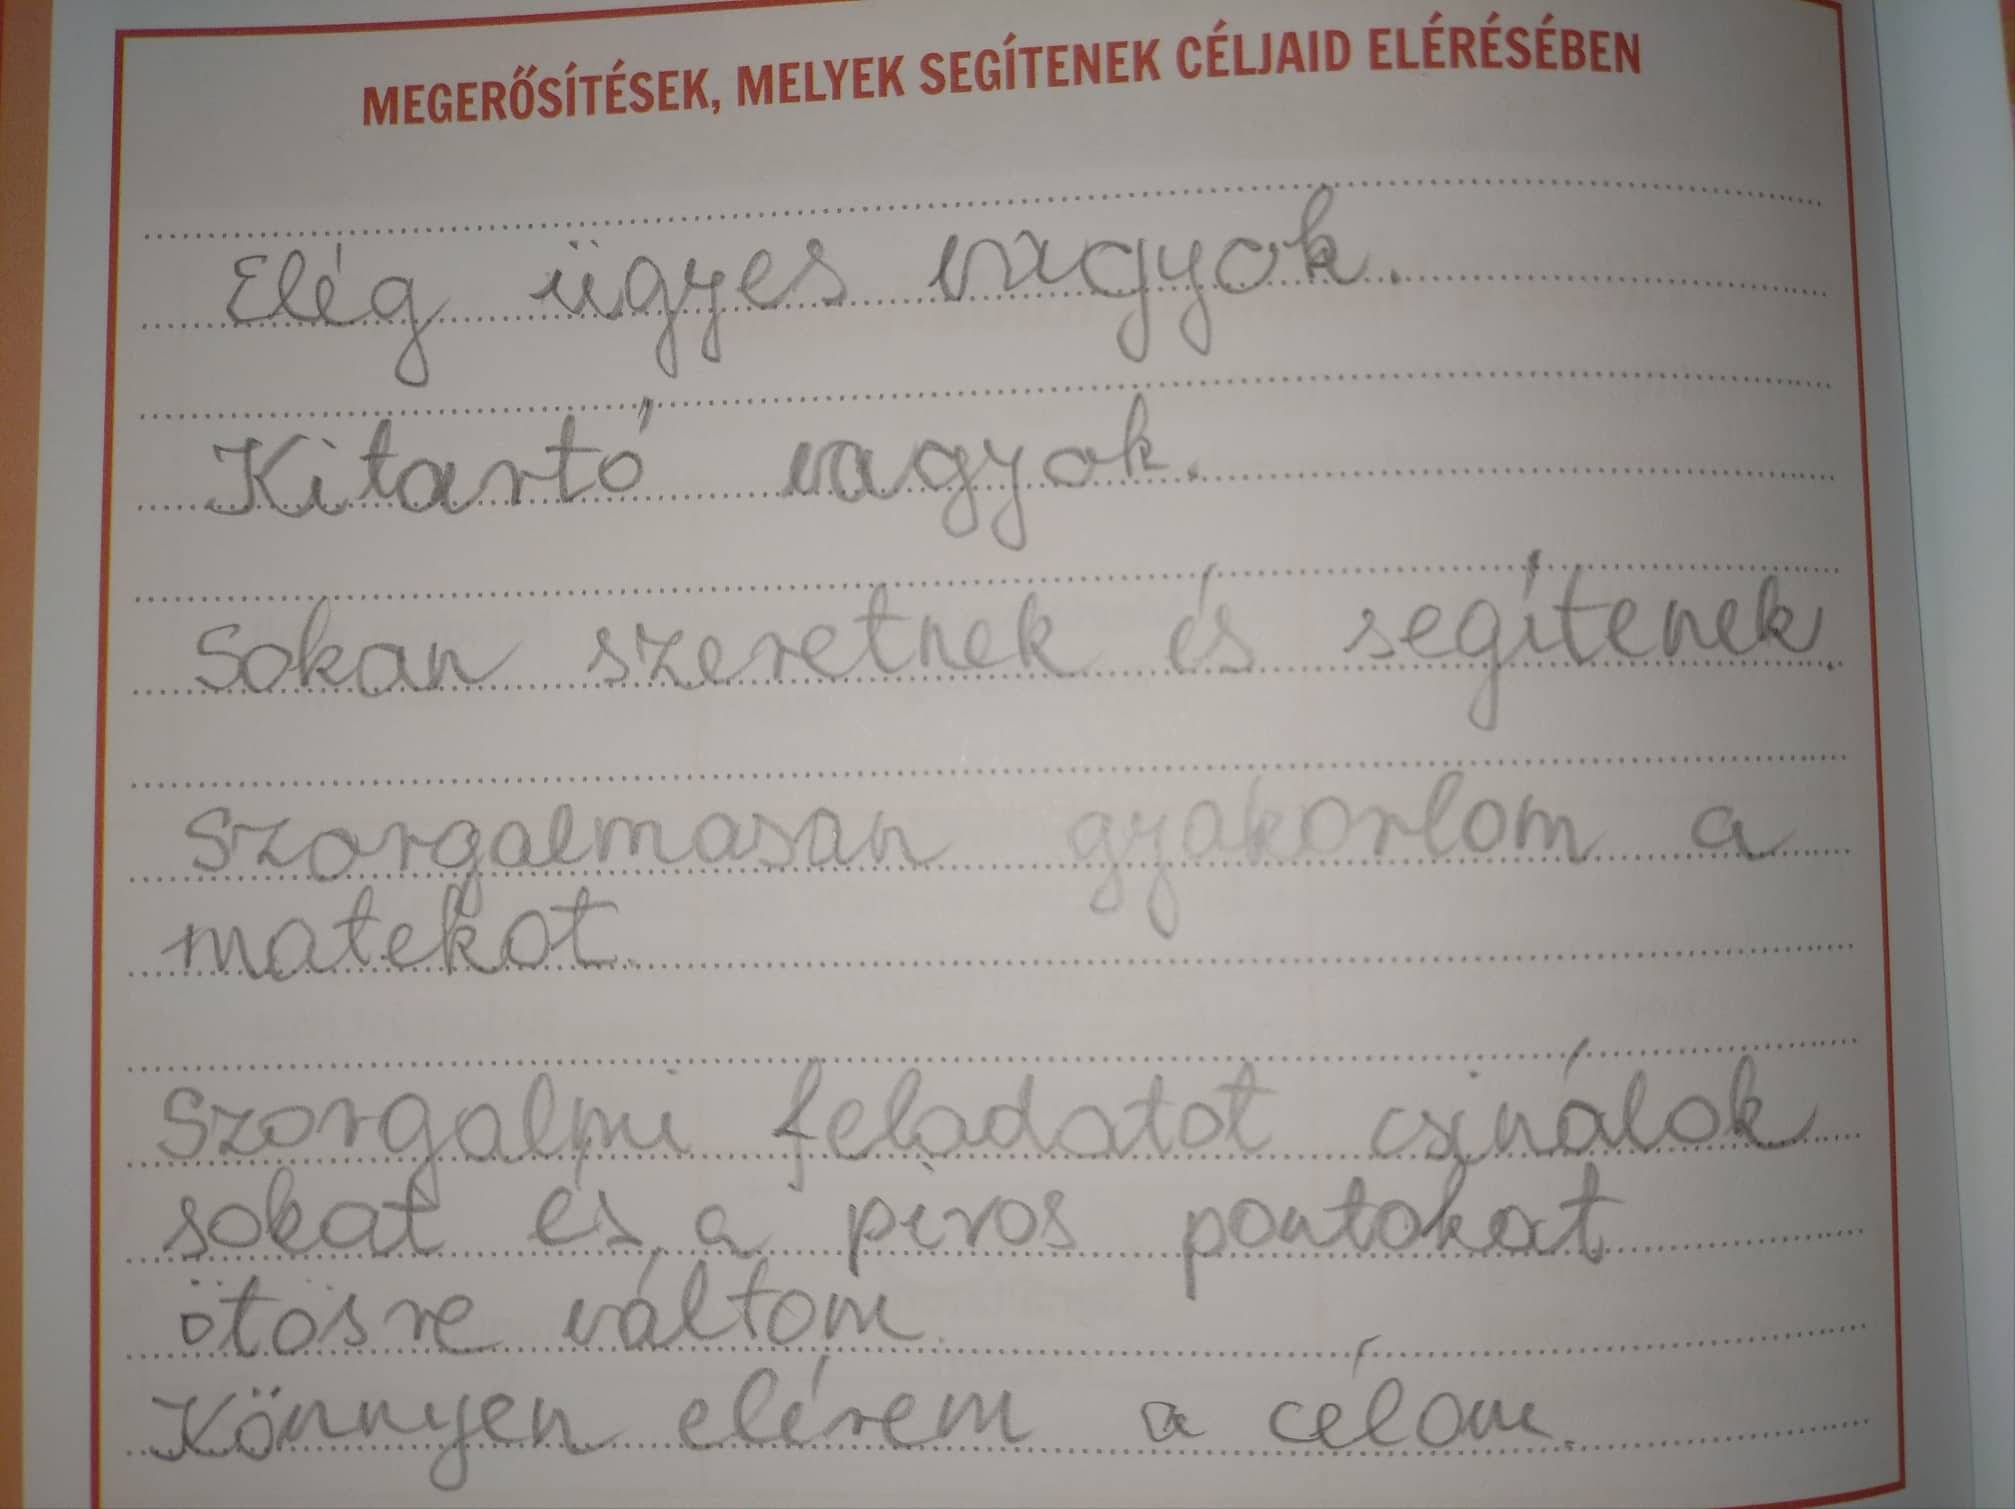 MEGERŐSÍTÉSEK, MELYEK SEGÍTENEK CÉLJAID ELÉRÉSÉBEN
Elég ügyes vagyok.
Kitartó vagyok.
Sokan szeretnek és segítenek.
Szorgalmasan gyakorlom a
matekot.
Szorgalmi feladatot csinálok
sokat és a piros pontokat
ötösre váltom.
Könnyen elérem a célom.